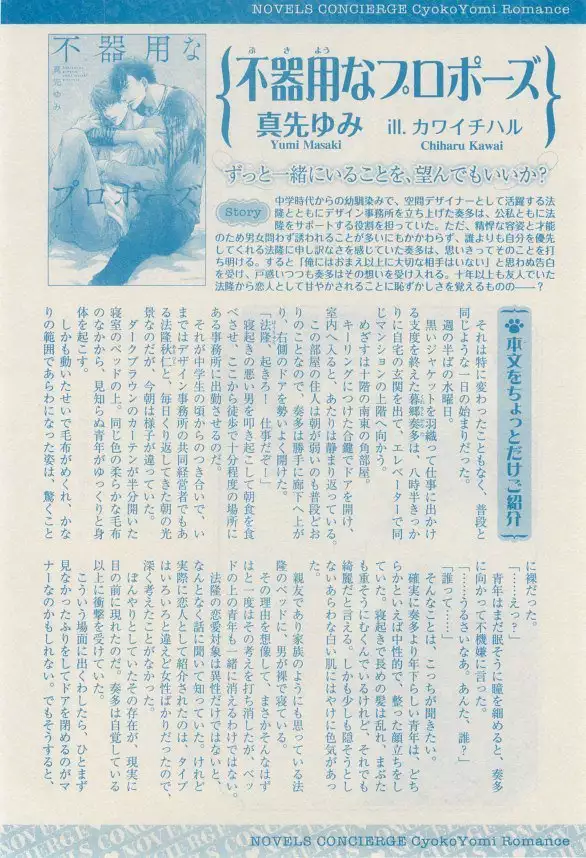 NOVELS CONCIERGE CyokoYomi Romance
不器用な
真先ゆみ
プロポーズ
ぶきよう
不器用なプロポーズ
真先ゆみ ill. カワイチハル
Yumi Masaki Chiharu Kawai
ずっと一緒にいることを、望んでもいいか?
Story
中学時代からの幼馴染みで、空間デザイナーとして活躍する法
隆とともにデザイン事務所を立ち上げた奏多は、公私ともに法
隆をサポートする役割を担っていた。ただ、精悍な容姿と才能
のため男女問わず誘われることが多いにもかかわらず、誰よりも自分を優先
してくれる法隆に申し訳なさを感じていた奏多は、思いきってそのことを打
ち明ける。すると「俺にはおまえ以上に大切な相手はいない」と思わぬ告白
を受け、戸惑いつつも奏多はその想いを受け入れる。十年以上も友人でいた
法隆から恋人として甘やかされることに恥ずかしさを覚えるものの――?
本文をちょっとだけご紹介
それは特に変わったこともなく、普段と
同じような一日の始まりだった。
週の半ばの水曜日。
黒いジャケットを羽織って仕事に出かけ
る支度を終えた暮郷奏多は、八時半きっか
りに自宅の玄関を出て、エレベーターで同
じマンションの上階へ向かう。
めざすは十階の南東の角部屋。
キーリングにつけた合鍵でドアを開け、
室内へ入ると、あたりは静まり返っている。
この部屋の住人は朝が弱いのも普段どお
りのことなので、奏多は勝手に廊下へ上が
り、右側のドアを勢いよく開けた。
「法隆、起きろ! 仕事だぞ!」
寝起きの悪い男を叩き起こして朝食を食
べさせ、ここから徒歩で十分程度の場所に
ある事務所に出勤させるのだ。
それが中学生の頃からのつき合いで、い
まではデザイン事務所の共同経営者でもあ
る法隆秋仁と、毎日くり返してきた朝の光
景なのだが、今朝は様子が違っていた。
ダークブラウンのカーテンが半分開いた
寝室のベッドの上。同じ色の柔らかな毛布
のなかから、見知らぬ青年がゆっくりと身
体を起こす。
しかも動いたせいで毛布がめくれ、かな
りの範囲であらわになった姿は、驚くこと
に裸だった。
「……えっ?」
青年はまだ眠そうに瞳を細めると、奏多
に向かって不機嫌に言った。
「……うるさいなあ。あんた、誰?」
「誰って……」
そんなことは、こっちが聞きたい。
確実に奏多より年下らしい青年は、どち
らかといえば中性的で、整った顔立ちをし
ていた。寝起きで長めの髪は乱れ、まぶた
も重そうにむくんでいるけれど、それでも
綺麗だと言える。しかも少しも隠そうとし
ないあらわな白い肌にはやけに色気があっ
た。
親友であり家族のようにも思っている法
隆のベッドに、男が裸で寝ている。
その理由を想像して、まさかそんなはず
はと一度はその考えを打ち消したが、ベッ
ドの上の青年も一緒に消えるわけではない。
法隆の恋愛対象は異性だけではないと、
なんとなく話に聞いて知っていた。けれど
実際に恋人として紹介されたのは、タイプ
はいろいろと違えど女性ばかりだったので、
深く考えたことがなかった。
ぼんやりしていたその存在が、現実に
目の前に現れたのだ。奏多は自覚している
以上に衝撃を受けていた。
こういう場面に出くわしたら、ひとまず
見なかったふりをしてドアを閉めるのがマ
ナーなのかもしれない。でもそうすると、
NOVELS CONCIERGE CyokoYomi Romance